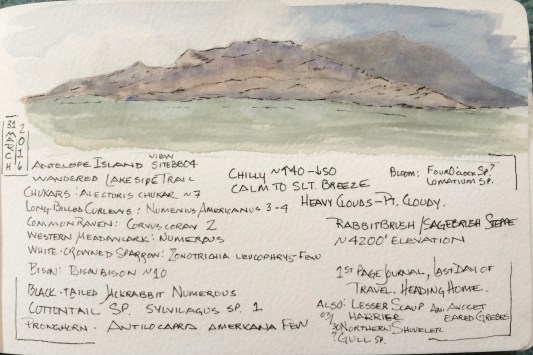 31 MARCH 2016
ANTELOPE ISLAND VIEW SITE BBC4
WANDERED LAKESIDE TRAIL
CHUKARS: ALECTORIS CHUKAR ~7
LONG-BILLED CURLEWS: NUMENIUS AMERICANUS 3-4
COMMON RAVEN: CORVUS CORAX 2
WESTERN MEADOWLARK: NUMEROUS
WHITE-CROWNED SPARROW: ZONOTRICHIA LEUCOPHRYS FEW
BISON: BISON BISON ~10
BLACK-TAILED JACKRABBIT NUMEROUS
COTTONTAIL SP. SYLVILAGUS SP. 1
PRONGHORN - ANTILOCAPRA AMERICANA FEW
CHILLY ~↑40-↓50
CALM TO SLT. BREEZE
HEAVY CLOUDS-PT. CLOUDY.
BLOOM: FOUR O'CLOCK SP.?
LOMATIUM SP.
RABBITBRUSH/SAGEBRUSH STEPPE
~4200' ELEVATION
1ST PAGE JOURNAL, LAST DAY OF
TRAVEL. HEADING HOME.
ALSO: LESSER SCAUP AM. AVOCET
HARRIER EARED GREBES
NORTHERN SHOVELER
? GULL SP.